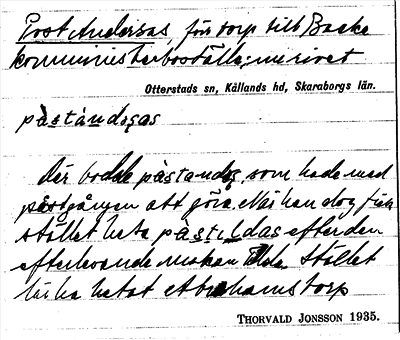 Post Andersas, förr torp till Backa
komministerboställe; nu rivet
Otterstads sn, Kållands hd, Skaraborgs län.
påstándәsas
Där bodde påstandәs, som hade med
påstgången att göra. När han dog fick
stället heta påstíldas efter den
efterlevande maken Ilda. Stället
lär ha hetat Abrahamstorp
THORVALD JONSSON 1935.